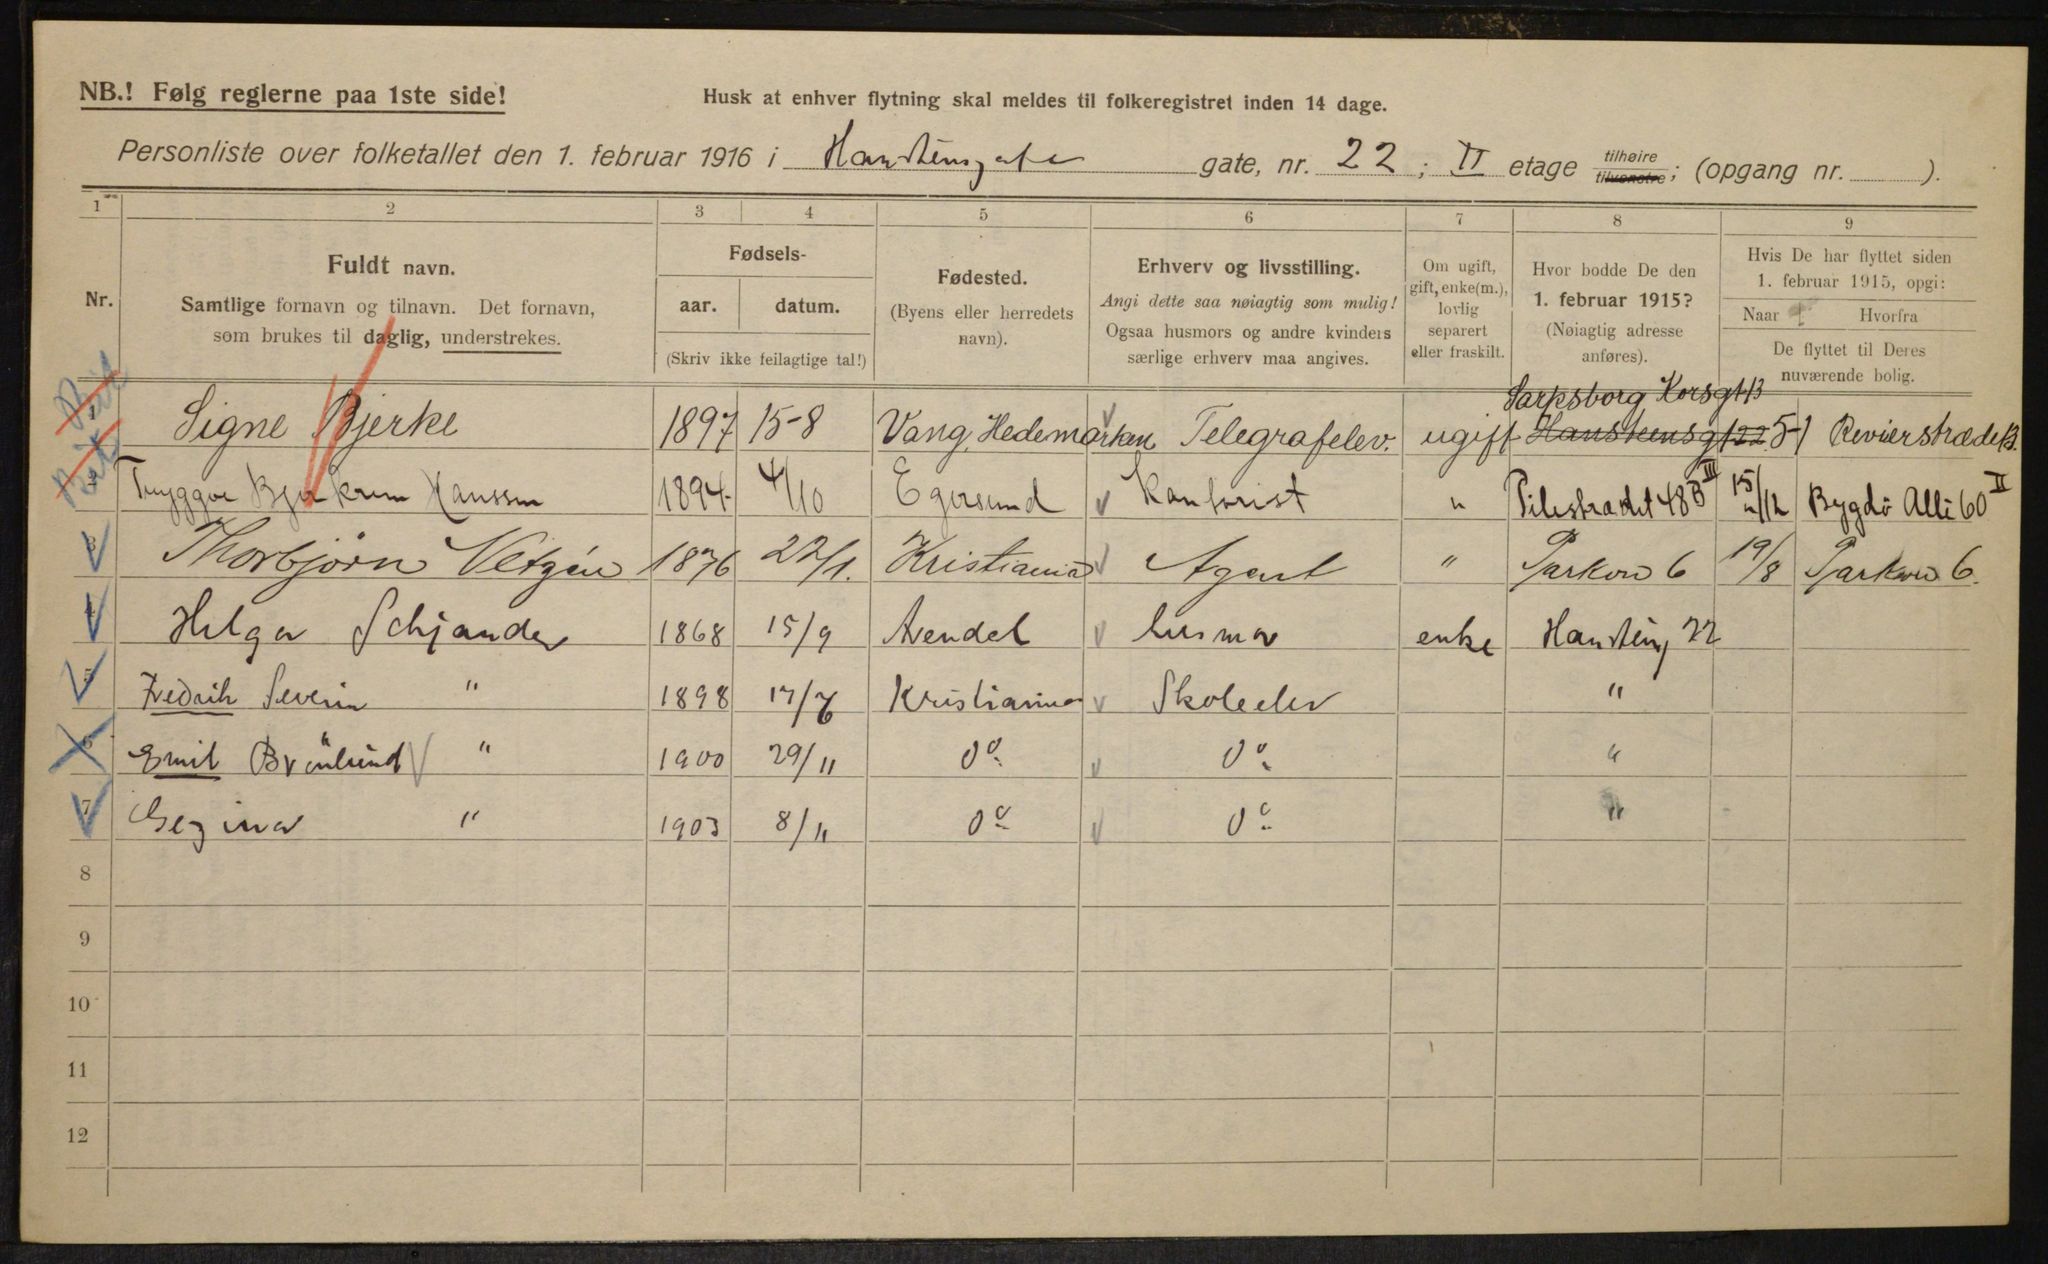 NB.! Følg reglerne paa 1ste side!
Husk at enhver flytning skal meldes til folkeregistret inden 14 dage.
Personliste over folketallet den 1. februar 1916 i Hansteensgate gate, nr. 22 ; II etage tilhøire tilvenstre; (opgang nr. ).
1 2 3 4 5 6 7 8 9
Nr.
Fuldt navn.
Samtlige fornavn og tilnavn. Det fornavn,
som brukes til daglig, understrekes.
Fødsels-
aar. datum.
(Skriv ikke feilagtige tal!)
Fødested.
(Byens eller herredets
navn).
Erhverv og livsstilling.
Angi dette saa nøiagtig som mulig!
Ogsaa husmors og andre kvinders
særlige erhverv maa angives.
Om ugift,
gift, enke(m.),
lovlig
separert
eller fraskilt.
Hvor bodde De den
1. februar 1915?
(Nøiagtig adresse
anføres).
Hvis De har flyttet siden
1. februar 1915, opgi:
Naar Hvorfra
De flyttet til Deres
nuværende bolig.
Sarpsborg Korsgt 13
1 Signe Bjerke 1897 15-8 Vang, Hedemarken Telegrafelev. ugift Hansteensgt 22 5-1 Revierstræde 13.
2 Tryggve Bjerkrem Hanssen 1894 4/10 Egersund Kontorist " Pilestrædet 48B III 15/12 Bygdö Allé 60 II
3 Thorbjørn 1876 22/1. Kristiania Agent " Parkvn 6 19/8 Parkvn 6.
4 Helga Schjander 1868 15/9 Arendal husmor enke Hansteensg 22
5 Fredrik Severin " 1898 17/7 Kristiania Skoleelev "
6 Emil " 1900 29/11 Do Do "
7 Gezina " 1903 8/11 Do Do "
8
9
10
11
12